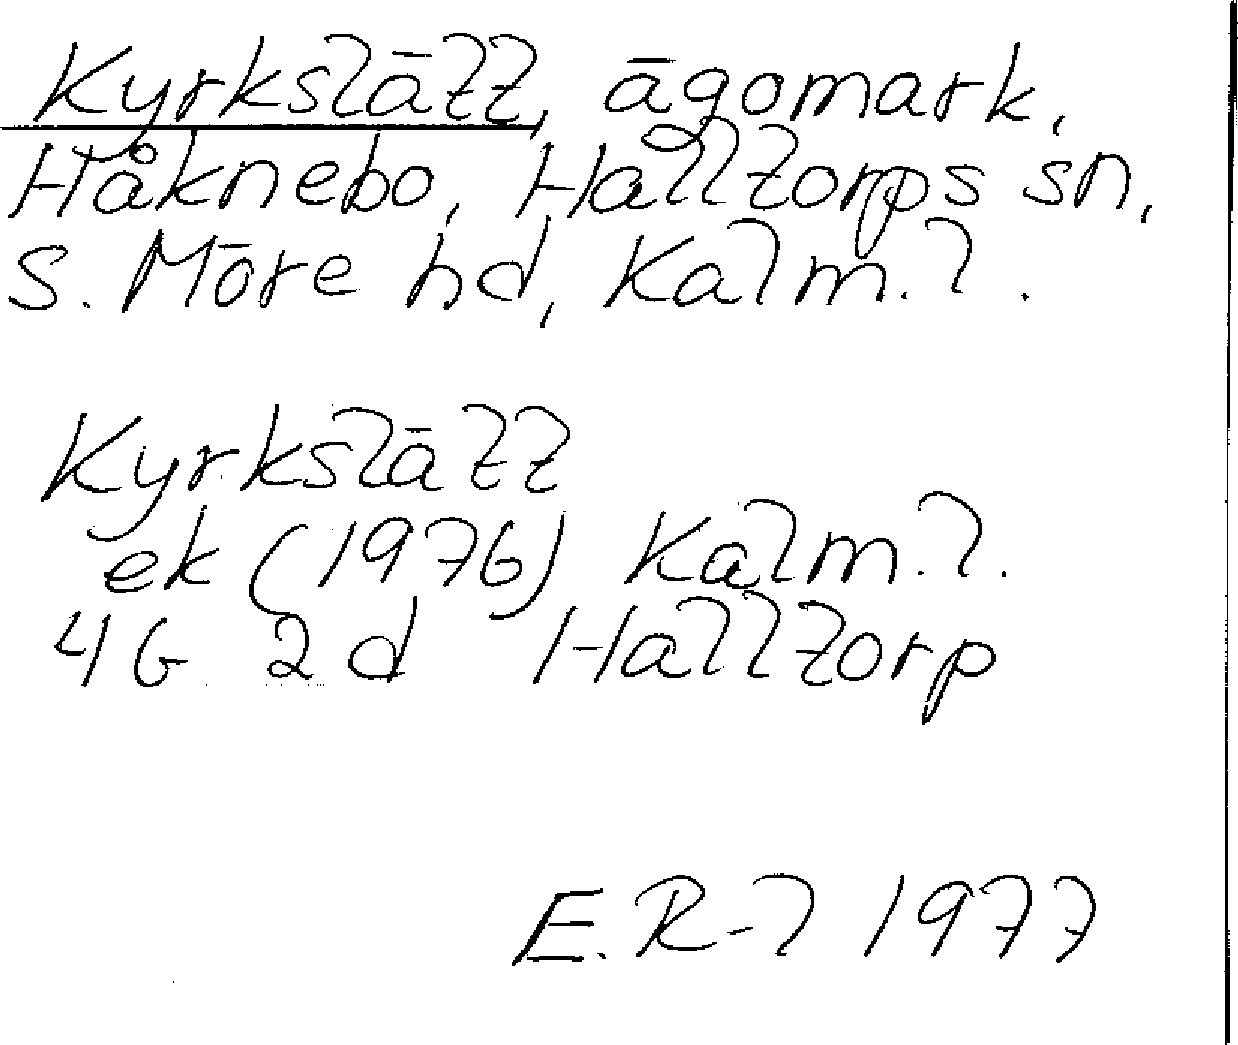 Kyrkslätt, ägomark,
Håknebo, Halltorps sn,
S. Möre hd, Kalm. l.
Kyrkslätt
ek (1976) Kalm. l.
4G 2d Halltorp
E. R-l 1977